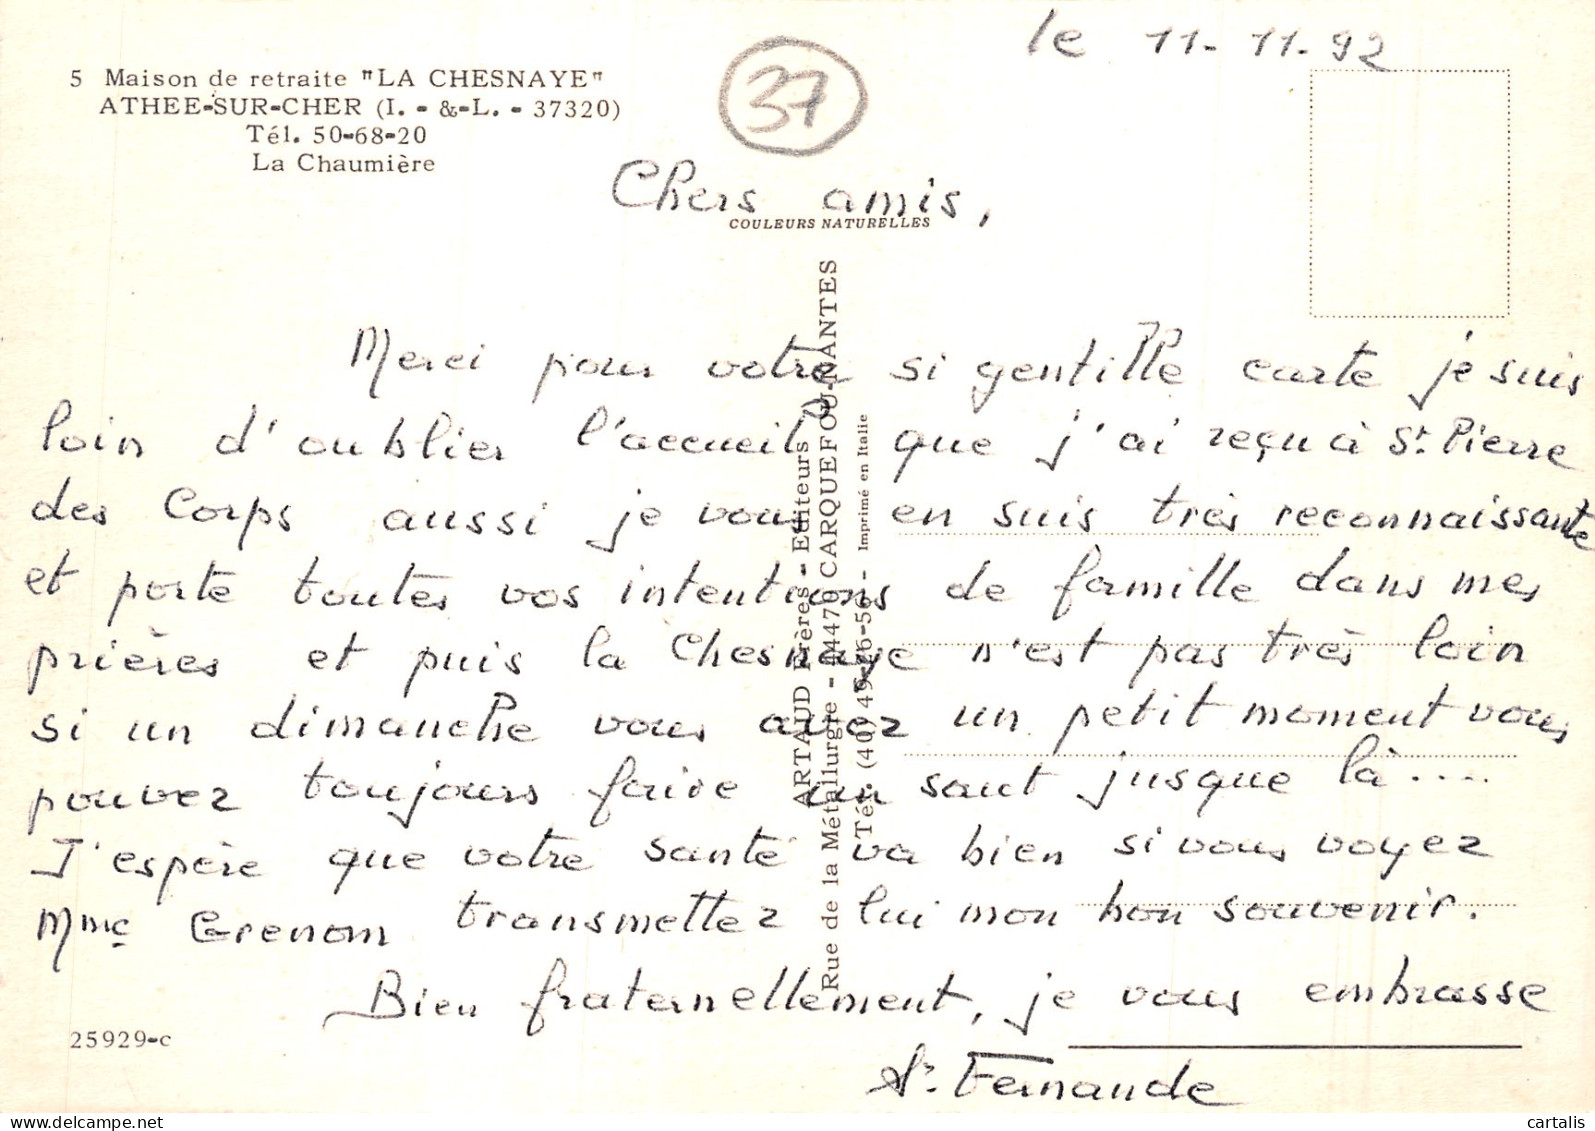 le 11-11-92
5 Maison de retraite "LA CHESNAYE"
ATHEE-SUR-CHER (I. - &-L. - 37320)
Tél. 50-68-20
La Chaumière
37
Chers amis,
COULEURS NATURELLES
Merci pour votre si gentille carte je suis
loin d'oublier l'accueil que j'ai reçu à St Pierre
des Corps aussi je vous en suis très reconnaissante
et porte toutes vos intentions de famille dans mes
prières et puis la Chesnaye n'est pas très loin
si un dimanche vous avez un petit moment vous
pouvez toujours faire un saut jusque là....
J'espère que votre santé va bien si vous voyez
Mme Grenom transmettez lui mon bon souvenir.
Bien fraternellement, je vous embrasse
Sr. Fernande
ARTAUD Frères - Editeurs
Rue de la Métallurgie - 44470 CARQUEFOU-NANTES
Tél. (40) 49-16-56 - Imprimé en Italie
25929-c
cartalis
delcampe.net